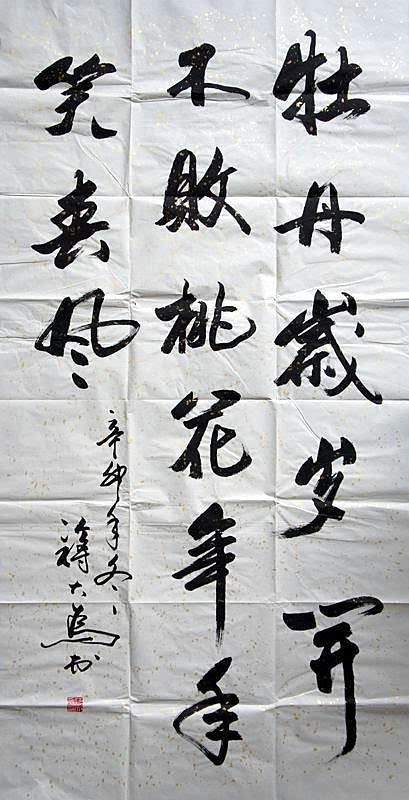 牡丹歲岁开
不敗桃花年年
笑春风
辛卯年冬
大為书